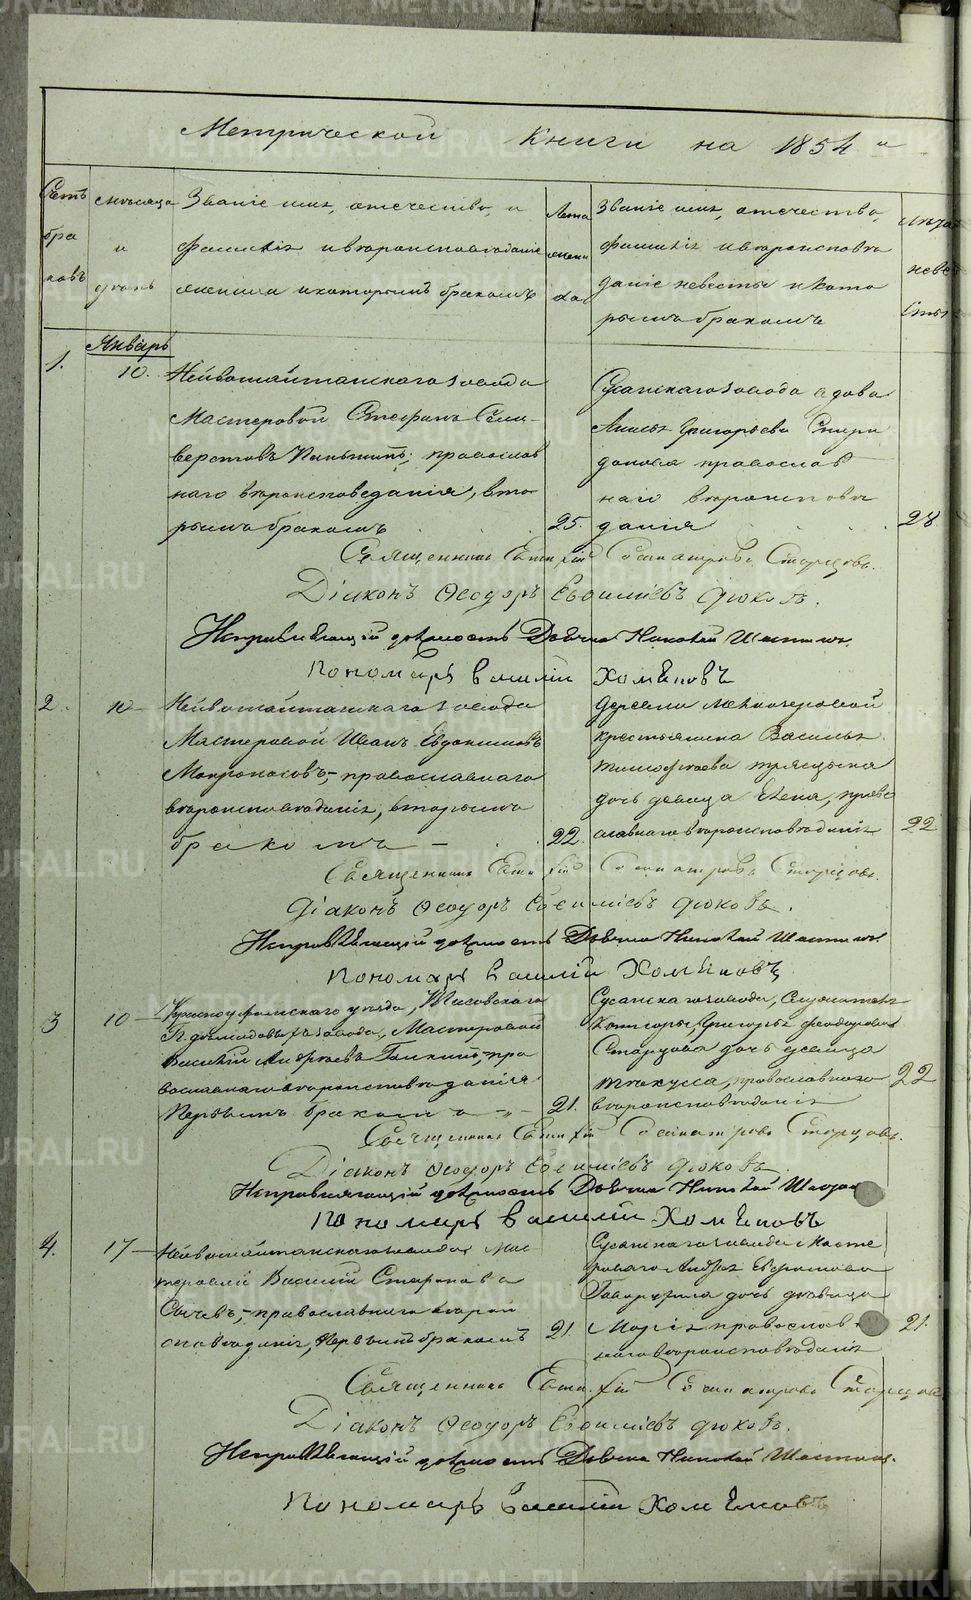 Метрической Книги на 1854 й
Счетъ
бра
ковъ
мѣсяца
и
день
Званіе имя, отечество, и
фамилія и вѣроисповѣданіе
жениха и которымъ бракомъ
Лета
жени
ха
Званіе имя, отечество,
фамилія и вѣроисповѣ
даніе невесты и кото
рымъ бракомъ
неве
сты
Январь
1.
10.
Нейвошайтанскаго завода
Мастеровой Стефанъ Сели-
верстовъ православ
наго вѣроисповеданія, вто-
рымъ бракомъ
25.
Сусанскаго завода вдова
Григорьева Спири
донова православ
наго вѣроисповѣ
данія
28
Священникъ Старцовъ.
Діаконъ Ѳеодоръ Евѳиміевъ Дюковъ.
Исправляющій должность Дьячка Николай
Пономарь Василій Хоменовъ
2.
10
Нейвошайтанскаго завода
Мастеровой Иванъ Евдокимовъ
православнаго
вѣроисповѣданія, вторымъ
бракомъ
22.
Деревни
крестьянина Василья
Тимофѣева
дочь девица Елена, право
славнаго вѣроисповѣданія
22
Священникъ Старцовъ.
Діаконъ Ѳеодоръ Евѳиміевъ Дюковъ.
Исправляющій должность Дьячка Николай
Пономарь Василій Хоменовъ
3
10
Красноуфимскаго уѣзда,
завода, Мастеровой
Василій Андреевъ пра
вославнаго вѣроисповѣданія
Первымъ бракомъ
21.
Сусанскаго завода, Служителя
Конторы, Григорья Феодорова
Старцова дочь девица
православнаго
вѣроисповѣданія
22
Священникъ Старцовъ.
Діаконъ Ѳеодоръ Евѳиміевъ Дюковъ.
Исправляющій должность Дьячка Николай
Пономарь Василій Хоменовъ
4.
17
Нейвошайтанскаго завода Мас
теровой Василій Стефановъ
Сычевъ, православнаго вѣрои
сповѣданія, Первымъ бракомъ
21.
Сусанскаго завода Масте
роваго Андрея Ефимова
Гаврурина дочь девица
Марія православ
наго вѣроисповѣданія
21.
Священникъ Старцовъ
Діаконъ Ѳеодоръ Евѳиміевъ Дюковъ.
Исправляющій должность Дьячка Николай
Пономарь Василій Хоменовъ
METRIKI.GASO-URAL.RU